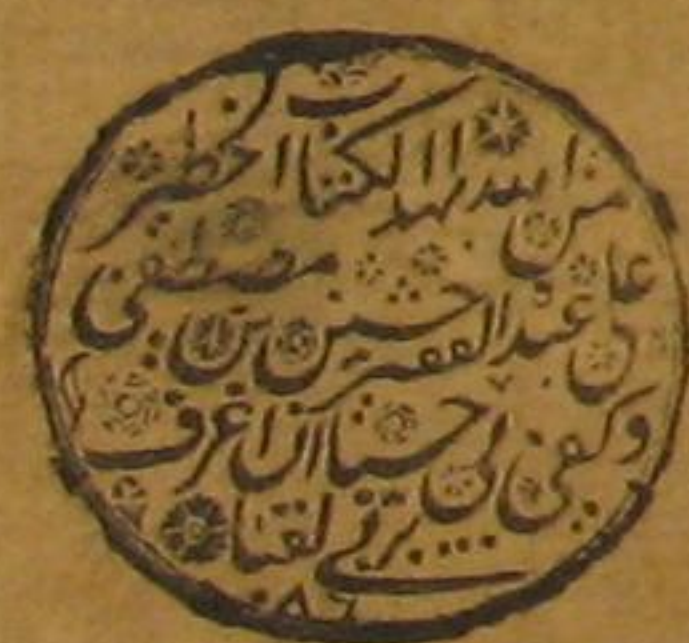 من الله بهذا الكتاب الخطير
على عبد الفقير حسن بن مصطفى
وكفى لي حسبا ان اعرف
بربي لقبا
٨٦